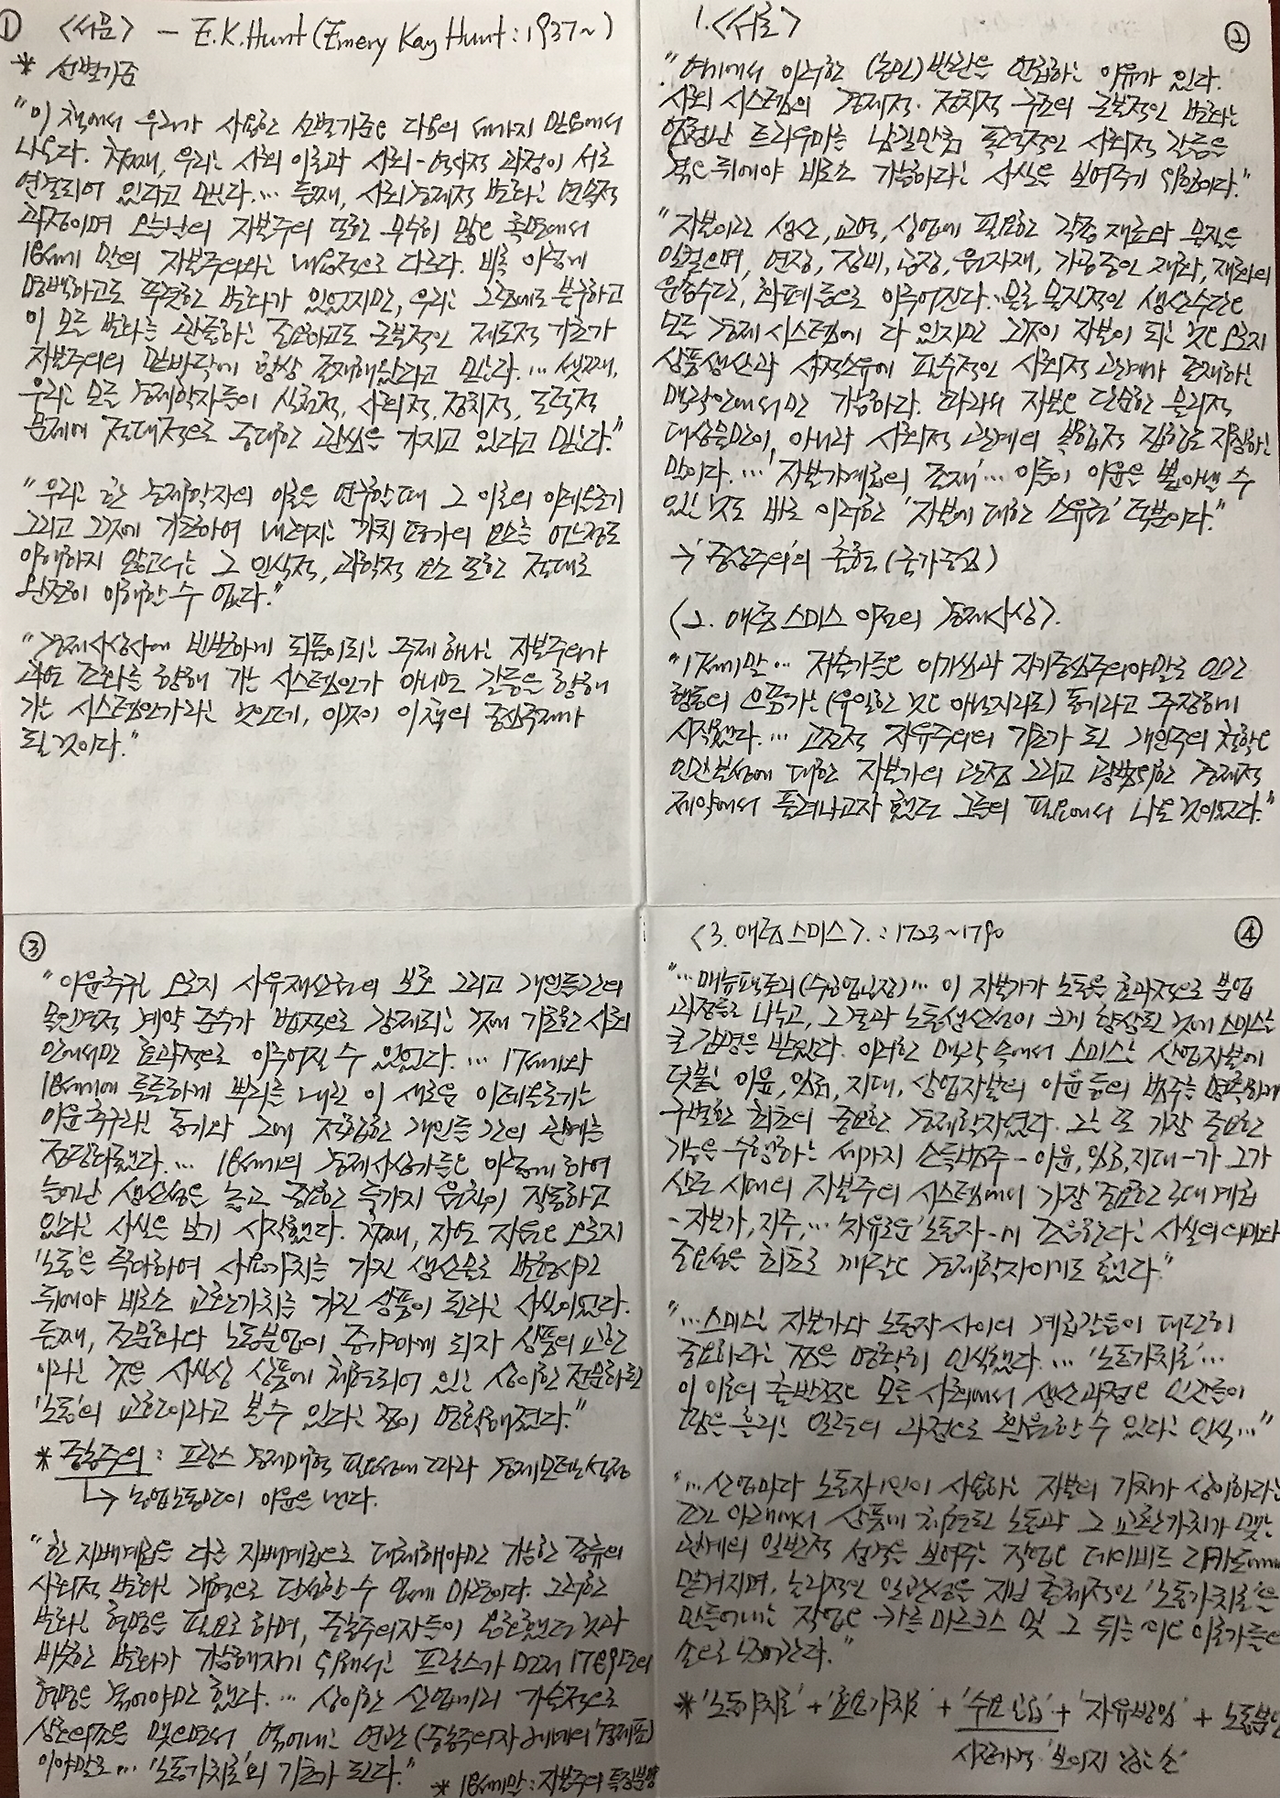 ① <서문> - E.K.Hunt (Emery Kay Hunt : 1937~)
* 선별기준
"이 책에서 우리가 사용한 선별기준은 다음의 세가지 믿음에서
나온다. 첫째, 우리는 사회 이론과 사회-역사적 과정이 서로
연결되어 있다고 믿는다... 둘째, 사회경제적 변화는 연속적
과정이며 오늘날의 자본주의 또한 무수히 많은 측면에서
18세기 말의 자본주의와는 내용적으로 다르다. 비록 이렇게
명백하고도 뚜렷한 변화가 있었지만, 우리는 그럼에도 불구하고
이 모든 변화를 관통하는 중요하고도 근본적인 제도적 기초가
자본주의의 밑바닥에 항상 존재해왔다고 믿는다. ... 셋째,
우리는 모든 경제학자들이 실천적, 사회적, 정치적, 도덕적
문제에 절대적으로 중대한 관심을 가지고 있다고 믿는다."
"우리는 한 경제학자의 이론을 연구할 때 그 이론의 이데올로기
그리고 그것에 기초하여 내려지는 가치 평가의 요소를 어느정도
이해하지 않고서는 그 인식적, 과학적 요소 또한 절대로
완전히 이해할 수 없다."
"경제사상사에 빈번하게 되풀이되는 주제 하나는 자본주의가
과연 조화를 향해 가는 시스템인가 아니면 갈등을 향해
가는 시스템인가라는 것인데, 이것이 이 책의 중심주제가
될 것이다."
②
1. <서론>
"여기에서 이러한 (농민) 반란을 언급하는 이유가 있다.
사회 시스템의 경제적·정치적 구조의 근본적인 변화는
엄청난 트라우마를 남길만큼 폭력적인 사회적 갈등을
겪은 뒤에야 비로소 가능하다는 사실을 보여주기 위함이다."
"자본이란 생산, 교역, 상업에 필요한 각종 재료와 물질을
일컬으며, 연장, 장비, 공장, 원자재, 가공중인 재화, 재화의
운송수단, 화폐 등으로 이루어진다. 물론 물질적인 생산수단은
모든 경제 시스템에 다 있지만 그것이 자본이 되는 것은 오로지
상품생산과 사적소유에 필수적인 사회적 관계가 존재하는
맥락안에서만 가능하다. 따라서 자본은 단순한 물리적
대상들만이 아니라 사회적 관계의 복합적 집합도 지칭하는
말이다. ... '자본가계급의 존재' ... 이들이 이윤을 뽑아낼 수
있는 것도 바로 이러한 '자본에 대한 소유권' 덕분이다."
→ '중상주의'의 출현 (국가중심)
<2. 애덤 스미스 이전의 경제사상>.
"17세기말 ... 저술가들은 이기심과 자기중심주의야말로 인간
행동의 으뜸가는 (유일한 것은 아닐지라도) 동기라고 주장하기
시작했다. ... 고전적 자유주의의 기초가 된 개인주의 철학은
인간본성에 대한 자본가의 관점 그리고 광범위한 경제적
제약에서 풀려나고자 했던 그들의 필요에서 나온 것이었다."
③
"이윤추구란 오로지 사유재산권의 보호 그리고 개인들간의
몰인격적 계약 준수가 법적으로 강제되는 것에 기초한 사회
안에서만 효과적으로 이루어질 수 있었다. ... 17세기와
18세기에 튼튼하게 뿌리를 내린 이 새로운 이데올로기는
이윤추구라는 동기와 그에 적합한 개인들 간의 관계를
정당화했다. ... 18세기의 경제사상가들은 이렇게 하여
늘어난 생산성을 놓고 중요한 두가지 원칙이 작동하고
있다는 사실을 보기 시작했다. 첫째, 자연 자원은 오로지
'노동'을 투하하여 사용가치를 가진 생산물로 변형시킨
뒤에야 비로소 교환가치를 가진 상품이 된다는 사실이었다.
둘째, 전문화와 노동분업이 증가하게 되자 상품의 교환
이라는 것은 사실상 상품에 체현되어 있는 상이한 전문화된
'노동'의 교환이라고 볼 수 있다는 점이 명확해졌다."
* 중농주의 : 프랑스 경제개혁 필요성에 따라 경제모델 설정
↳ 농업노동만이 이윤을 낸다.
"한 지배계급을 다른 지배계급으로 대체해야만 가능한 종류의
사회적 변화는 개혁으로 달성할 수 없게 마련이다. 그러한
변화는 혁명을 필요로 하며, 중농주의자들이 옹호했던 것과
비슷한 변화가 가능해지기 위해서는 프랑스가 먼저 1789년의
혁명을 겪어야만 했다. ... 상이한 산업끼리 기술적으로
상호의존을 맺으면서 엮어내는 연관 (중농주의자 케네의 '경제표')
이야말로 ... '노동가치론'의 기초가 된다."
* 18세기말 : 자본주의 특징 분명
④
<3. 애덤 스미스>. : 1723~1790
"... 매뉴팩토리(수공업공장) ... 이 자본가가 노동을 효과적으로 분업
과정들로 나누고, 그 결과 노동생산성이 크게 향상된 것에 스미스는
큰 감명을 받았다. 이러한 맥락 속에서 스미스는 산업자본에
덧붙는 이윤, 임금, 지대, 상업자본의 이윤 등의 범주를 명확하게
구별한 최초의 중요한 경제학자였다. 그는 또 가장 중요한
기능을 수행하는 세가지 소득범주 - 이윤, 임금, 지대 - 가 그가
살던 시대의 자본주의 시스템에서 가장 중요한 3대 계급
- 자본가, 지주, ... '자유로운' 노동자 - 에 조응한다는 사실의 의미와
중요성을 최초로 깨달은 경제학자이기도 했다."
"... 스미스는 자본가와 노동자 사이의 계급갈등이 대단히
중요하다는 점을 명확히 인식했다. ... '노동가치론' ...
이 이론의 출발점은 모든 사회에서 생산 과정은 인간들이
땀을 흘리는 일들의 과정으로 환원할 수 있다는 인식 ..."
"... 산업마다 노동자 1인이 사용하는 자본의 가치가 상이하다는
조건 아래에서 상품에 체현된 노동과 그 교환가치가 맺는
관계의 일반적 성격을 보여주는 작업은 데이비드 리카도에게
맡겨지며, 논리적인 일관성을 지닌 총체적인 '노동가치론'을
만들어내는 작업은 카를 마르크스 및 그 뒤를 이은 이론가들의
손으로 넘어간다."
* '노동가치론' + '효용가치론' + '수요공급' + '자유방임' + 노동분업
시장가격 '보이지 않는 손'